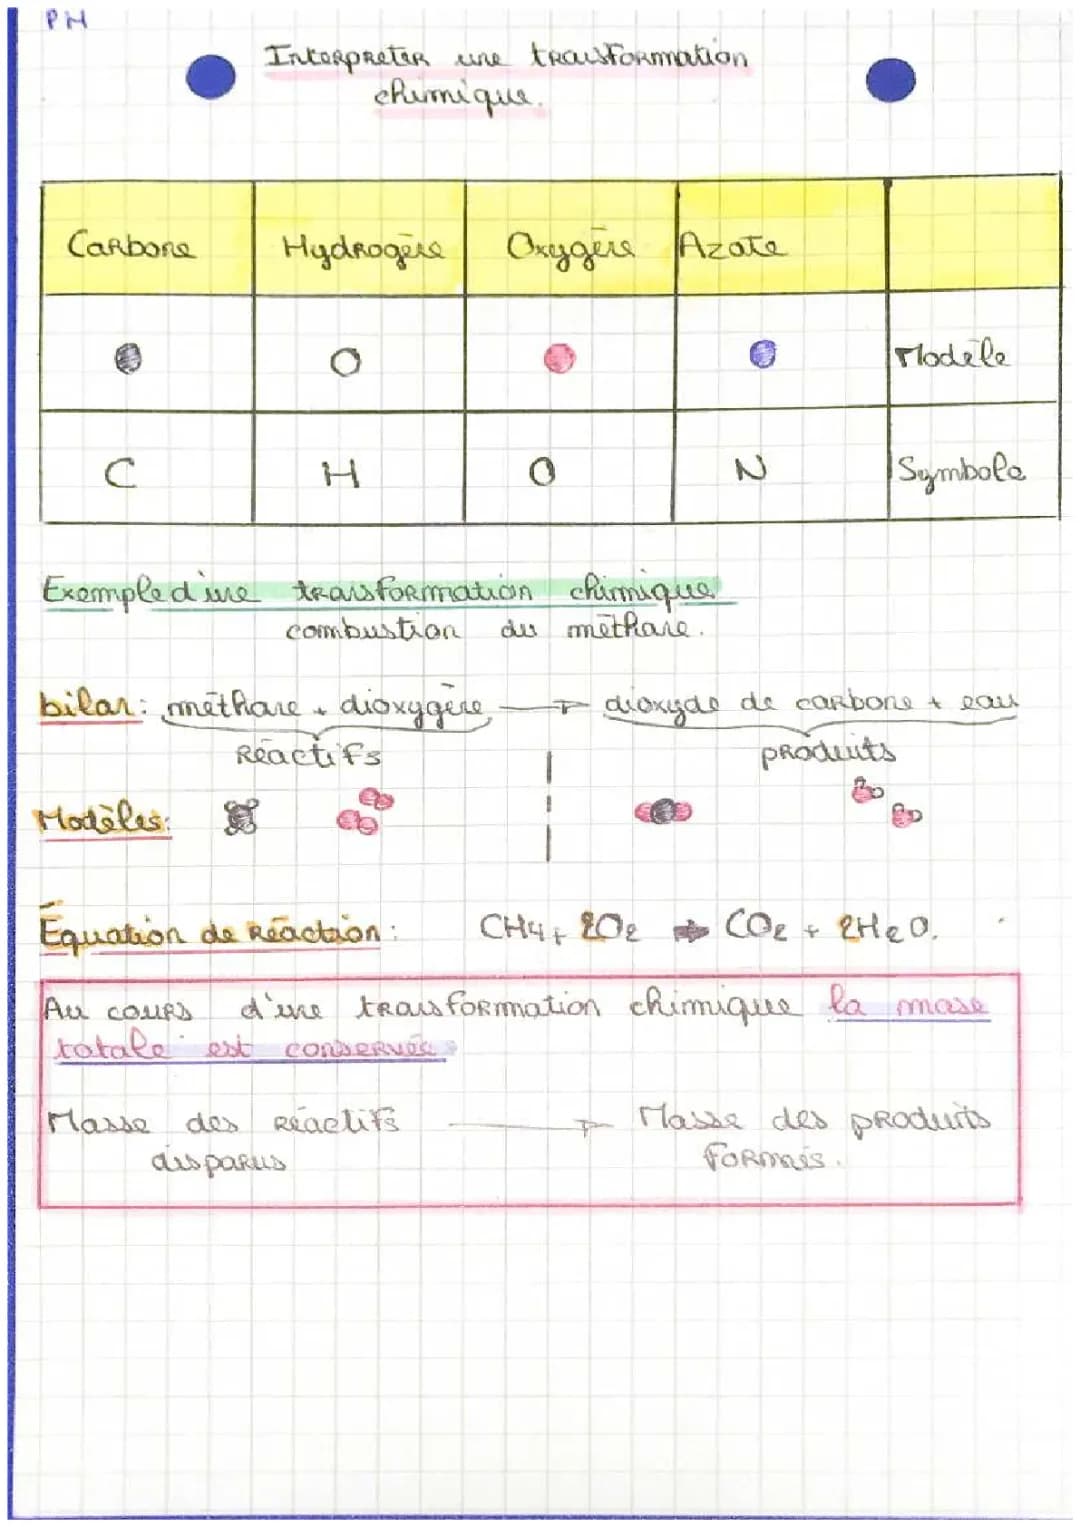 PH
Interpreter une transformation
chimique.
Carbone Hydrogène Oxygène Azote
Modèle
C H O N Symbole
Exemple d'une transformation chimique
combustion du méthane.
bilan: méthane + dioxygène → dioxyde de carbone + eau
Réactifs produits
Modèles:
Équation de Réaction: CH4 + 2O2 → CO2 + 2H2O.
Au cours d'une transformation chimique la mase
totale est conservée
Masse des réactifs → Masse des produits
disparus formés.